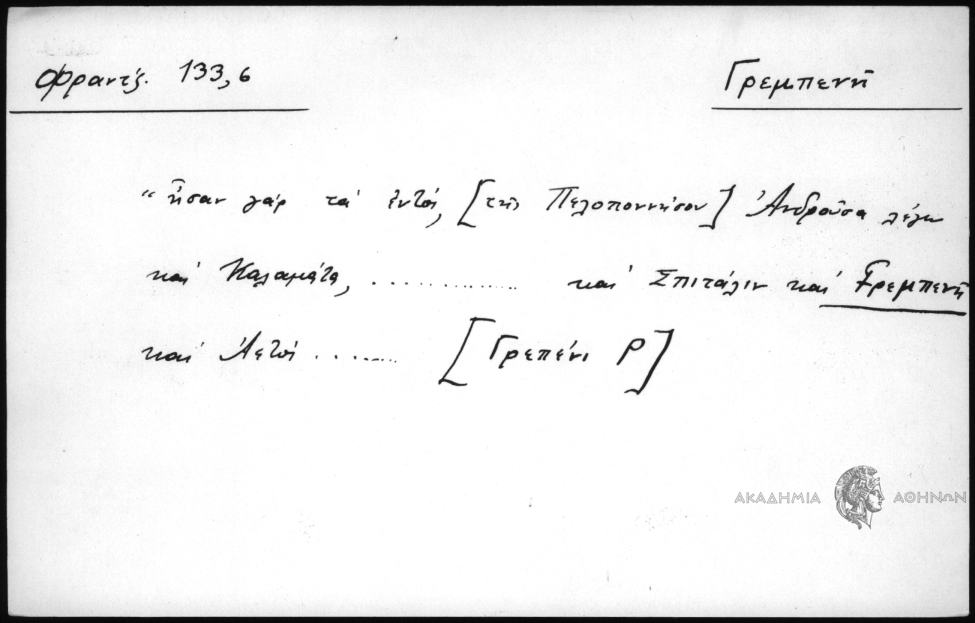 Φραντζ. 133,6
Γρεμπενῆ
"ἦσαν γάρ τά ἐντός, [τῆς Πελοποννήσου] Ἀνδροῦσα λέγω
καί Καλαμάτα, .............. καί Σπιτάλιν καί Γρεμπενῆ
καί Ἀετόι ......... [Γρεπένι P]
ΑΚΑΔΗΜΙΑ ΑΘΗΝΩΝ